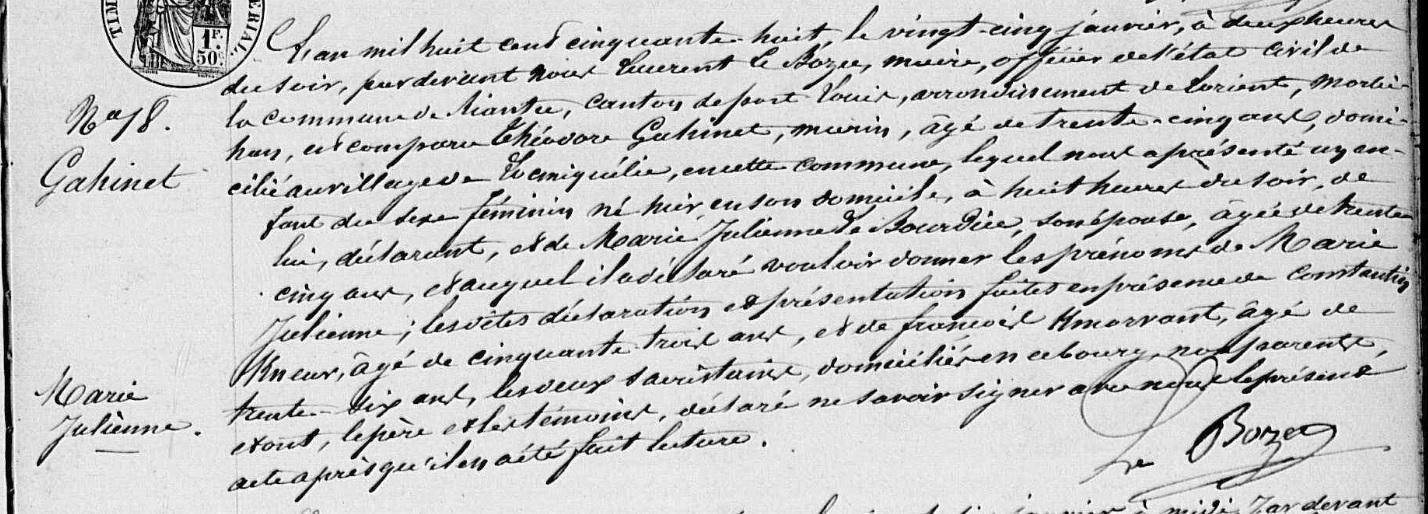 TIM
ERIAL.
1F.
50c.
L'an mil huit cent cinquante huit, le vingt-cinq janvier, à deux heures
du soir, par devant nous Laurent Le Bozec, maire, officier de l'état civil de
la commune de Riantec, canton de port Louis, arrondissement de Lorient, Morbi-
han, est comparu Théodore Gahinet, marin, âgé de trente-cinq ans, domi-
cilié au village de Locmiquélic, en cette commune, lequel nous a présenté un en-
fant du sexe féminin né hier, en son domicile, à huit heures du soir, de
lui, déclarant, et de Marie Julienne Le Bourdiec, son épouse, âgée de trente
cinq ans, et auquel il a déclaré vouloir donner les prénoms de Marie
Julienne; les dites déclaration et présentation faites en présence de Constantin
Kneur, âgé de cinquante trois ans, et de françois Kmorvant, âgé de
trente-six ans, les deux sacristains, domiciliés en ce bourg, non parents,
et ont, le père et les témoins, déclaré ne savoir signer avec nous le présent
acte après qu'il en a été fait lecture.
Le Bozec
No 18.
Gahinet
Marie
Julienne.
janvier à midi, par devant